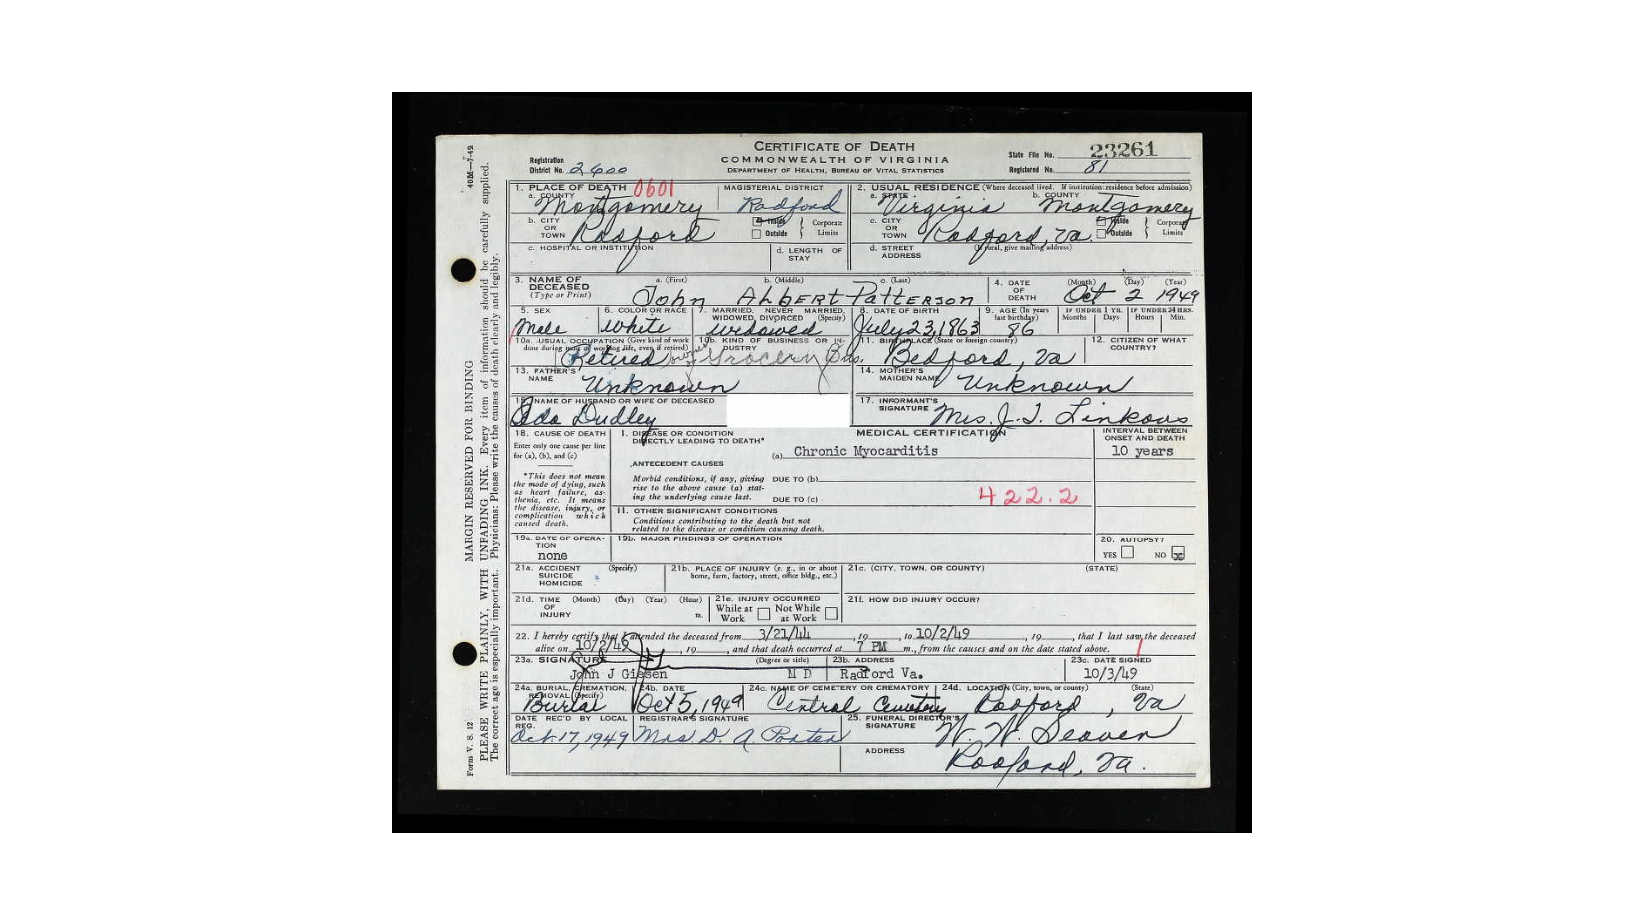 CERTIFICATE OF DEATH
COMMONWEALTH OF VIRGINIA
DEPARTMENT OF HEALTH, BUREAU OF VITAL STATISTICS
Registration District No. 2600
State File No. 23261
Registered No. 81
1. PLACE OF DEATH 0601
a. COUNTY Montgomery
MAGISTERIAL DISTRICT Radford
b. CITY OR TOWN Radford
Inside Outside Corporate Limits
c. HOSPITAL OR INSTITUTION
d. LENGTH OF STAY
2. USUAL RESIDENCE (Where deceased lived. If institution: residence before admission)
a. STATE Virginia
b. COUNTY Montgomery
c. CITY OR TOWN Radford, Va.
Inside Outside Corporate Limits
d. STREET ADDRESS (If rural, give mailing address)
3. NAME OF DECEASED (Type or Print)
a. (First) b. (Middle) c. (Last)
John Albert Patterson
4. DATE OF DEATH (Month) (Day) (Year)
Oct 2 1949
5. SEX Male
6. COLOR OR RACE White
7. MARRIED, NEVER MARRIED, WIDOWED, DIVORCED (Specify) widowed
8. DATE OF BIRTH July 23, 1863
9. AGE (In years last birthday) 86
IF UNDER 1 YR. Months Days
IF UNDER 24 HRS. Hours Min.
10a. USUAL OCCUPATION (Give kind of work done during most of working life, even if retired) Retired owner
10b. KIND OF BUSINESS OR INDUSTRY Grocery Bus.
11. BIRTHPLACE (State or foreign country) Bedford, Va
12. CITIZEN OF WHAT COUNTRY?
13. FATHER'S NAME Unknown
14. MOTHER'S MAIDEN NAME Unknown
15. NAME OF HUSBAND OR WIFE OF DECEASED
Ada Dudley
17. INFORMANT'S SIGNATURE Mrs. J. T. Linkous
18. CAUSE OF DEATH
Enter only one cause per line for (a), (b), and (c)
*This does not mean the mode of dying, such as heart failure, asthenia, etc. It means the disease, injury, or complication which caused death.
MEDICAL CERTIFICATION
INTERVAL BETWEEN ONSET AND DEATH
I. DISEASE OR CONDITION DIRECTLY LEADING TO DEATH*
(a) Chronic Myocarditis 10 years
ANTECEDENT CAUSES
Morbid conditions, if any, giving rise to the above cause (a) stating the underlying cause last.
DUE TO (b)
DUE TO (c)
422.2
II. OTHER SIGNIFICANT CONDITIONS
Conditions contributing to the death but not related to the disease or condition causing death.
19a. DATE OF OPERATION none
19b. MAJOR FINDINGS OF OPERATION
20. AUTOPSY?
YES NO x
21a. ACCIDENT SUICIDE HOMICIDE (Specify)
21b. PLACE OF INJURY (e. g., in or about home, farm, factory, street, office bldg., etc.)
21c. (CITY, TOWN, OR COUNTY) (STATE)
21d. TIME OF INJURY (Month) (Day) (Year) (Hour) m.
21e. INJURY OCCURRED
While at Work Not While at Work
21f. HOW DID INJURY OCCUR?
22. I hereby certify that I attended the deceased from 3/21/44, 19__, to 10/2/49, 19__, that I last saw the deceased
alive on 10/2/49, 19__, and that death occurred at 7 PM m., from the causes and on the date stated above.
23a. SIGNATURE (Degree or title)
John J Giesen M D
23b. ADDRESS Radford Va.
23c. DATE SIGNED 10/3/49
24a. BURIAL, CREMATION, REMOVAL (Specify) Burial
24b. DATE Oct 5, 1949
24c. NAME OF CEMETERY OR CREMATORY Central Cemetery
24d. LOCATION (City, town, or county) (State) Radford, Va
DATE REC'D BY LOCAL REG. Oct. 17, 1949
REGISTRAR'S SIGNATURE Mrs. D. A. Porter
25. FUNERAL DIRECTOR'S SIGNATURE
ADDRESS Radford, Va.
40M—7-49
MARGIN RESERVED FOR BINDING
PLEASE WRITE PLAINLY, WITH UNFADING INK. Every item of information should be carefully supplied.
The correct age is especially important. Physicians: Please write the causes of death clearly and legibly.
Form V. S. 12